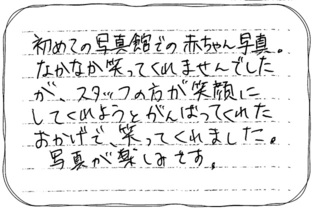 初めての写真館での赤ちゃん写真。
なかなか笑ってくれませんでした
が、スタッフの方が笑顔に
してくれようとがんばってくれた
おかげで、笑ってくれました。
写真が楽しみです。